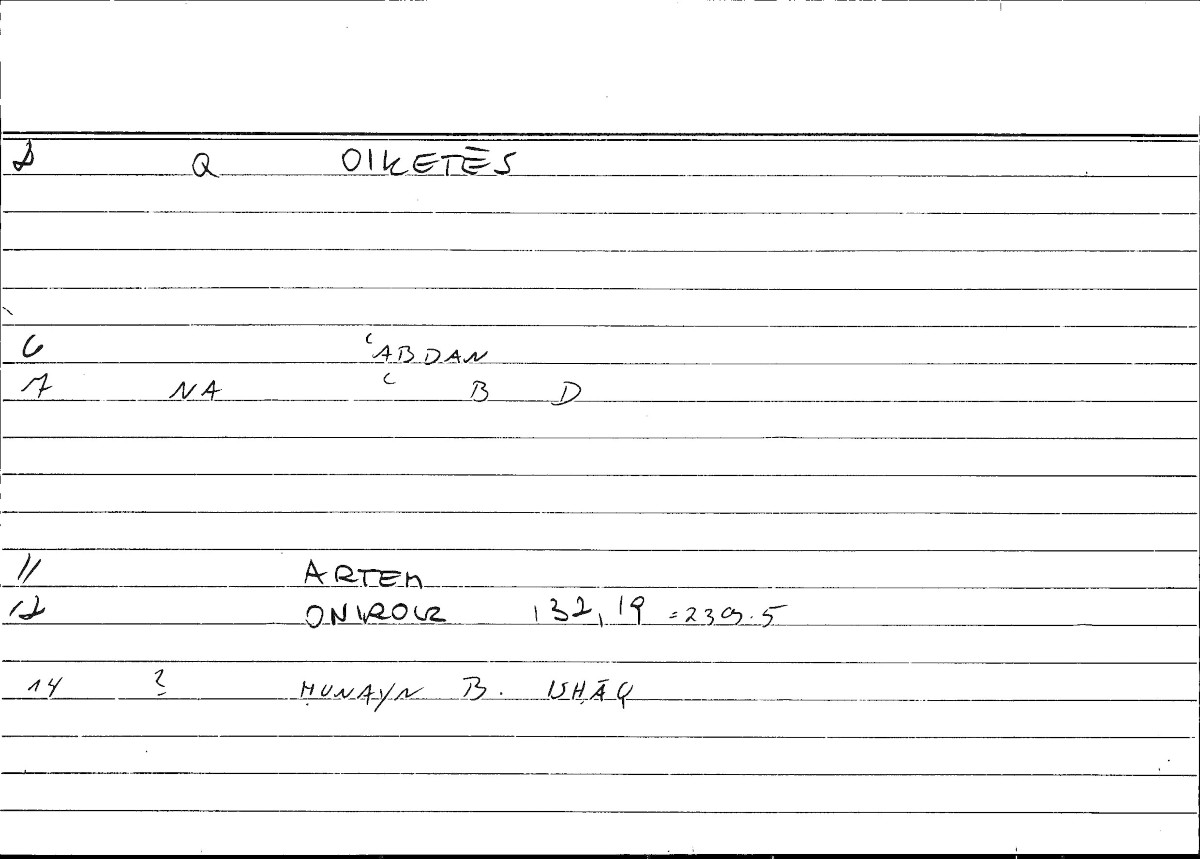 2 Q OIKETĒS
6 ʿABDAN
7 NA ʿ B D
11 ARTEM
12 ONIROCR 132,19 =239.5
14 ? ḤUNAYN B. ISḤĀQ